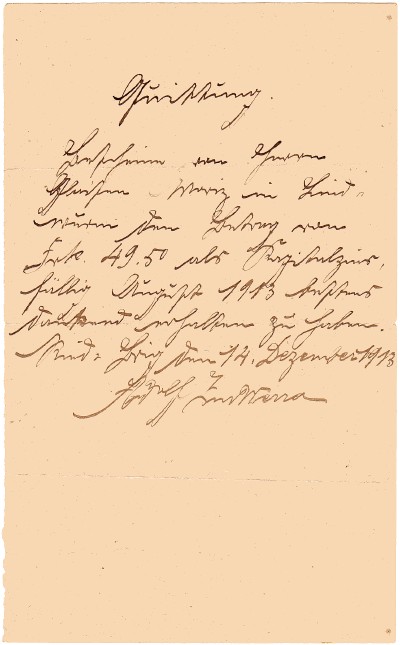 Quittung.
Bescheine von Herrn
Moriz in Lind-
wurm den Betrag von
Frk. 49.50 als Kapitalzins,
fällig August 1913 bestens
dankend erhalten zu haben.
Ried-Brig den 14. Dezember 1913
Adolf Zenklusen